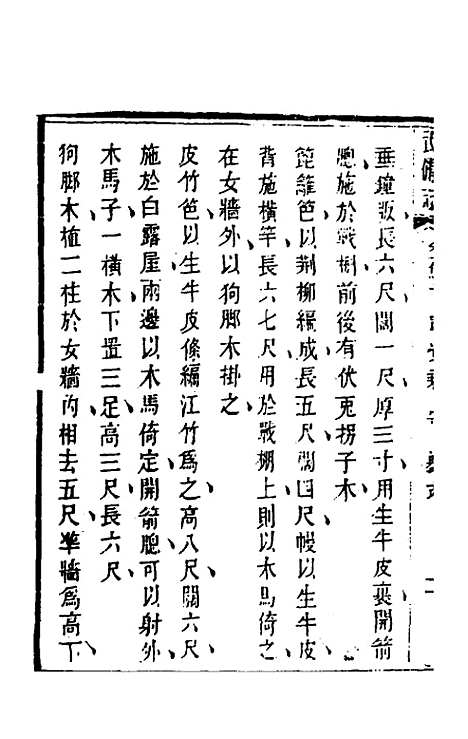 垂鐘版長六尺闊一尺厚三寸用生牛皮裹開箭
牕施於戰棚前後有伏兎拐子木
篦籬笆以荆柳編成長五尺闊四尺幔以生牛皮
背施橫竿長六七尺用於戰棚上則以木馬倚之
在女牆外以狗脚木掛之
皮竹笆以生牛皮條編江竹爲之高八尺闊六尺
施於白露屋兩邊以木馬倚定開箭牕可以射外
木馬子一橫木下置三足高三尺長六尺
狗脚木植二柱於女牆內相去五尺準牆爲高下